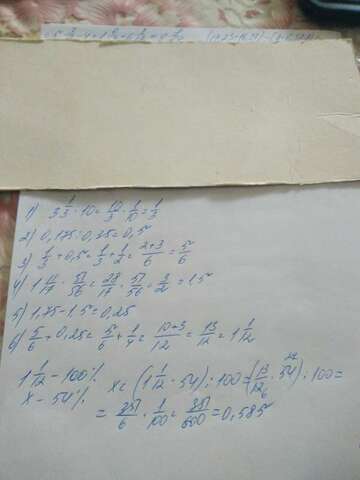 1) 3 1/3 : 10 = 10/3 · 1/10 = 1/3
2) 0,175 : 0,35 = 0,5
3) 1/3 + 0,5 = 1/3 + 1/2 = 2+3/6 = 5/6
4) 1 11/17 · 51/56 = 28/17 · 51/56 = 3/2 = 1,5
5) 1,75 - 1,5 = 0,25
6) 5/6 + 0,25 = 5/6 + 1/4 = 10+3/12 = 13/12 = 1 1/12
1 1/12 - 100%
x - 54%
x = (1 1/12 · 54) : 100 = (13/12 · 54) : 100 =
= 351/6 · 1/100 = 351/600 = 0,585